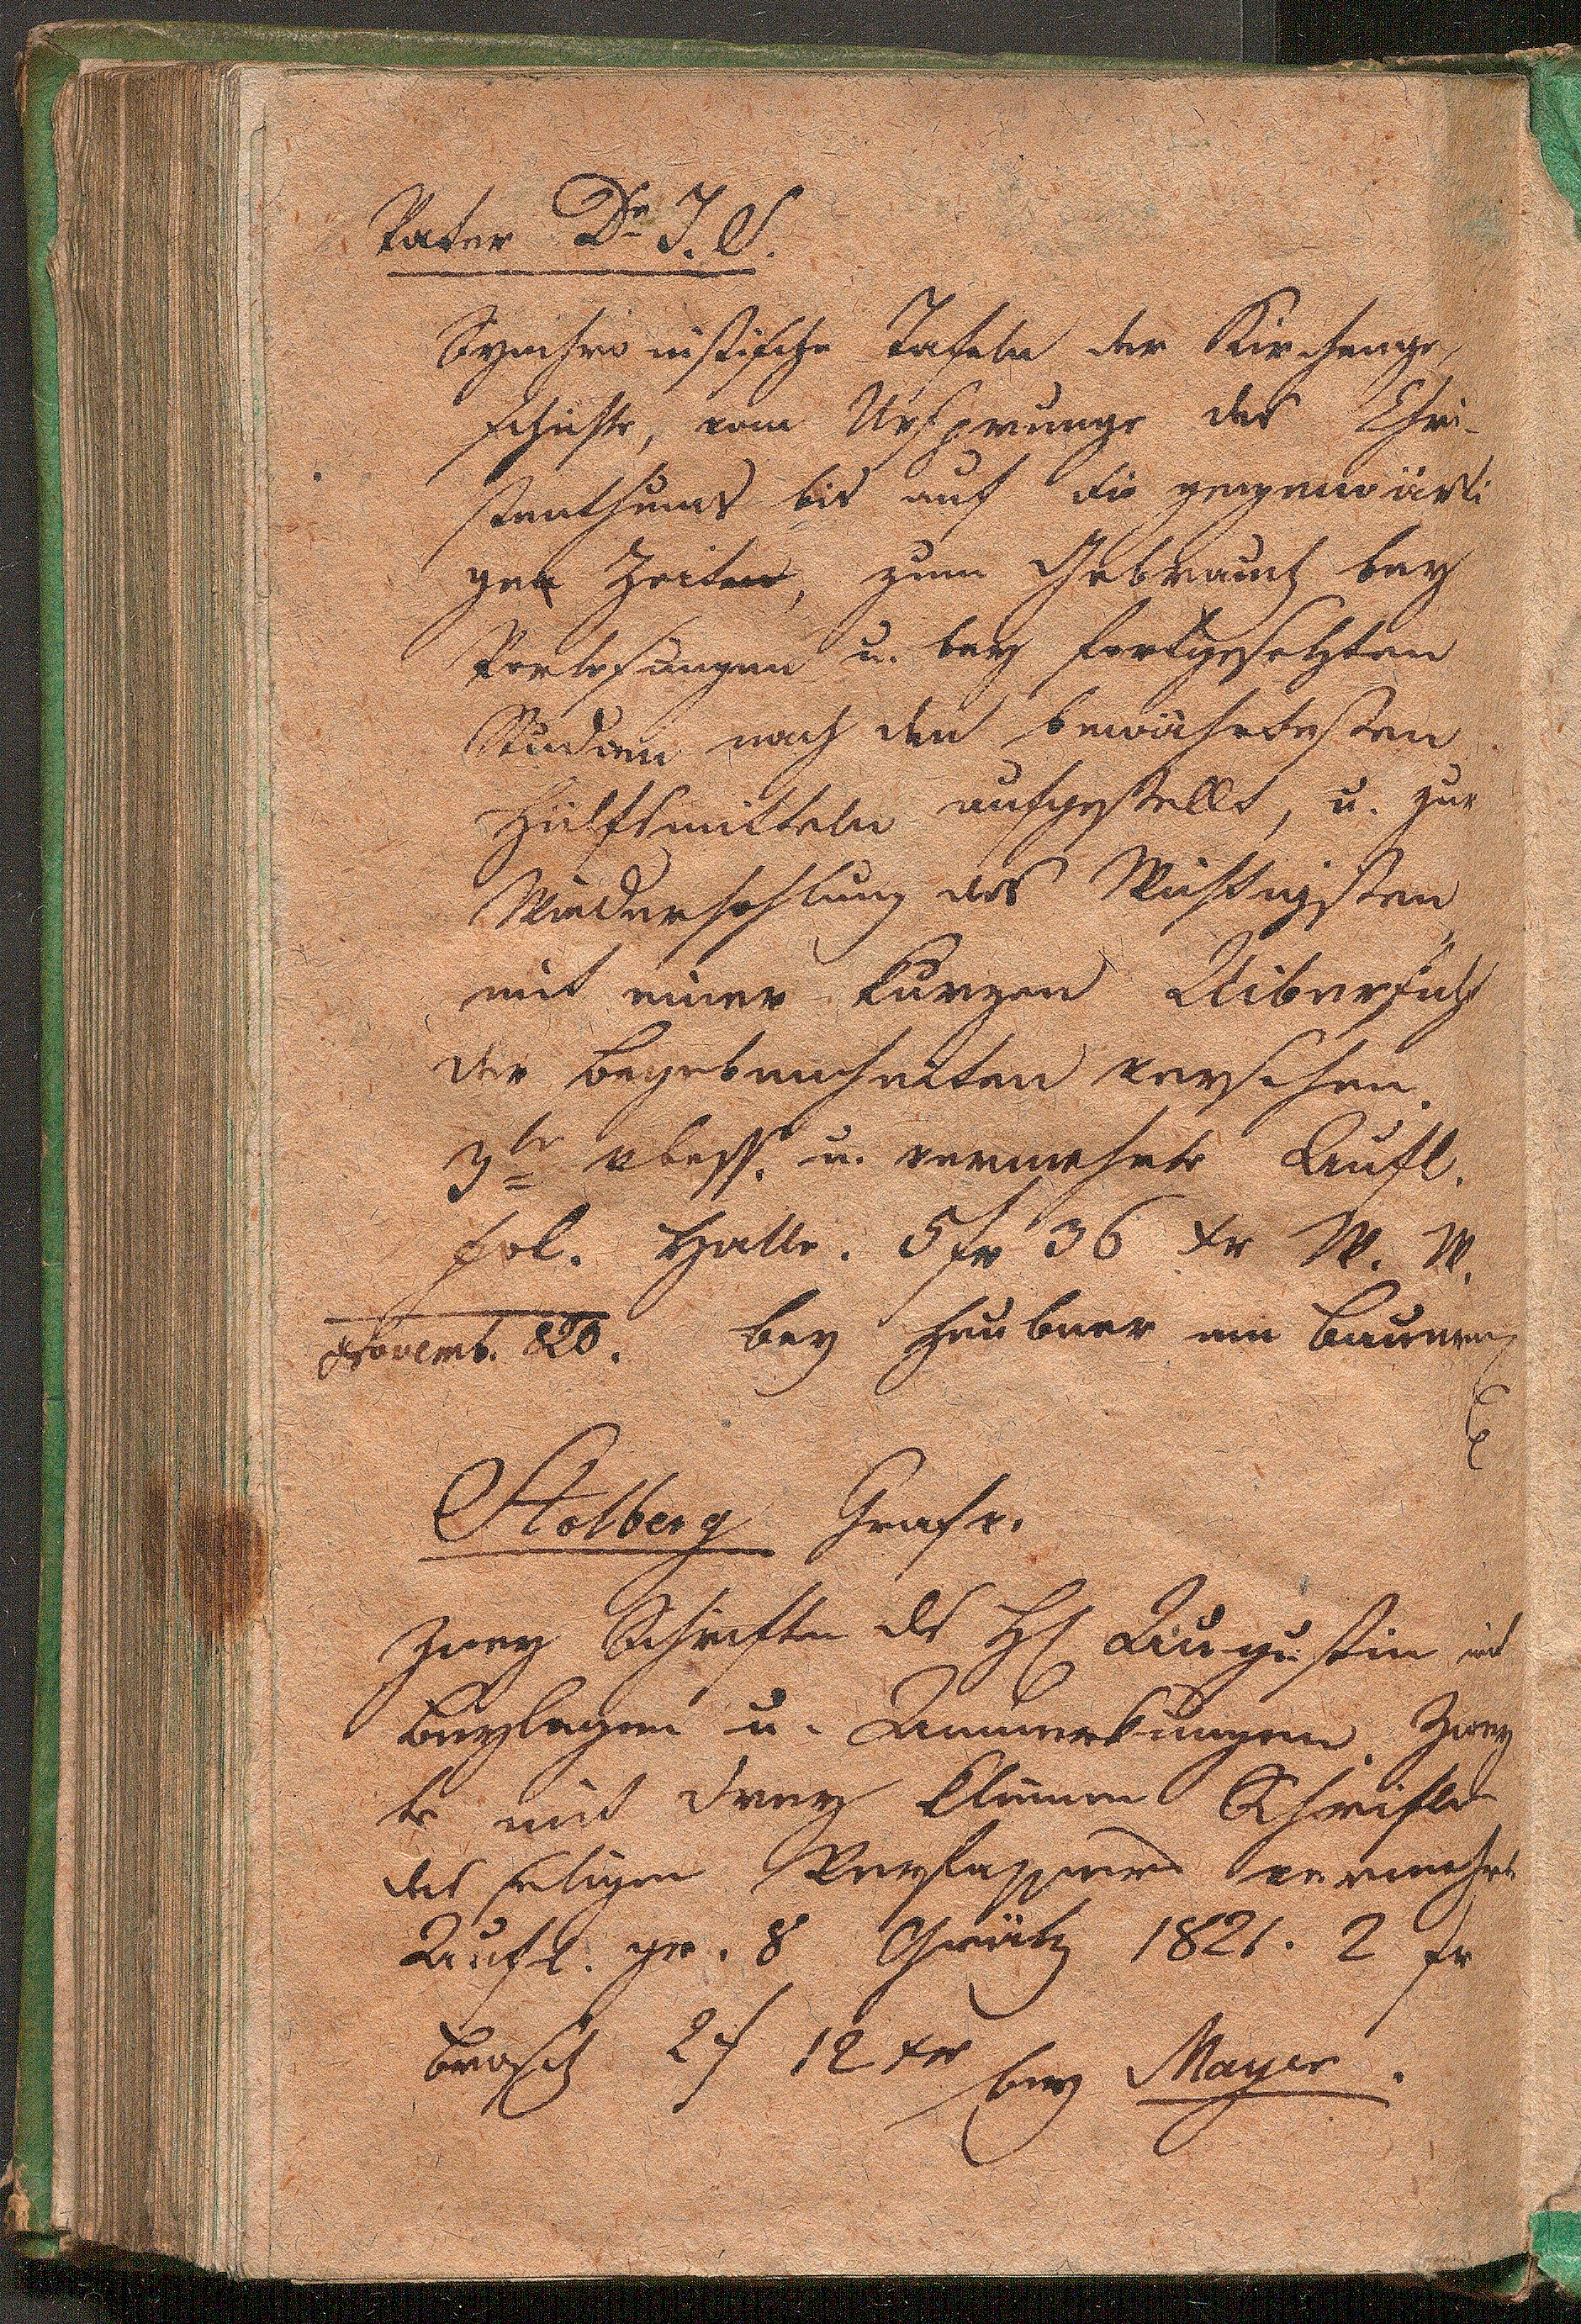 Vater Dr J. S.
Synchronistische Tafeln der Kirchenge,
schichte, vom Ursprunge des Chri-
stenthums bis auf die gegenwärti
gen Zeiten, zum Gebrauch bey
Vorlesungen u. bey fortgesetzten
Studien nach den bewährtesten
Hülfsmitteln aufgestellt, u. zur
Wiederhohlung des Wichtigsten
mit einer kurzen Uibersicht
der Begebenheiten versehen.
3te vbess. u. vermehrte Aufl.
fol. Halle. 5 fr 36 xr W. W.
Novemb. 820. bey Heubner am Bauern,
Stolberg Graf v.
Zwey Schriften des Hl Augustin mit
Beylagen u. Anmerkungen. Zwey
te mit drey kleinen Schriften
des seligen Verfassers vermehrte
Aufl. gr. 8 Grätz 1821. 2 fr
brosch 2 f 12 xr bey Mayer.